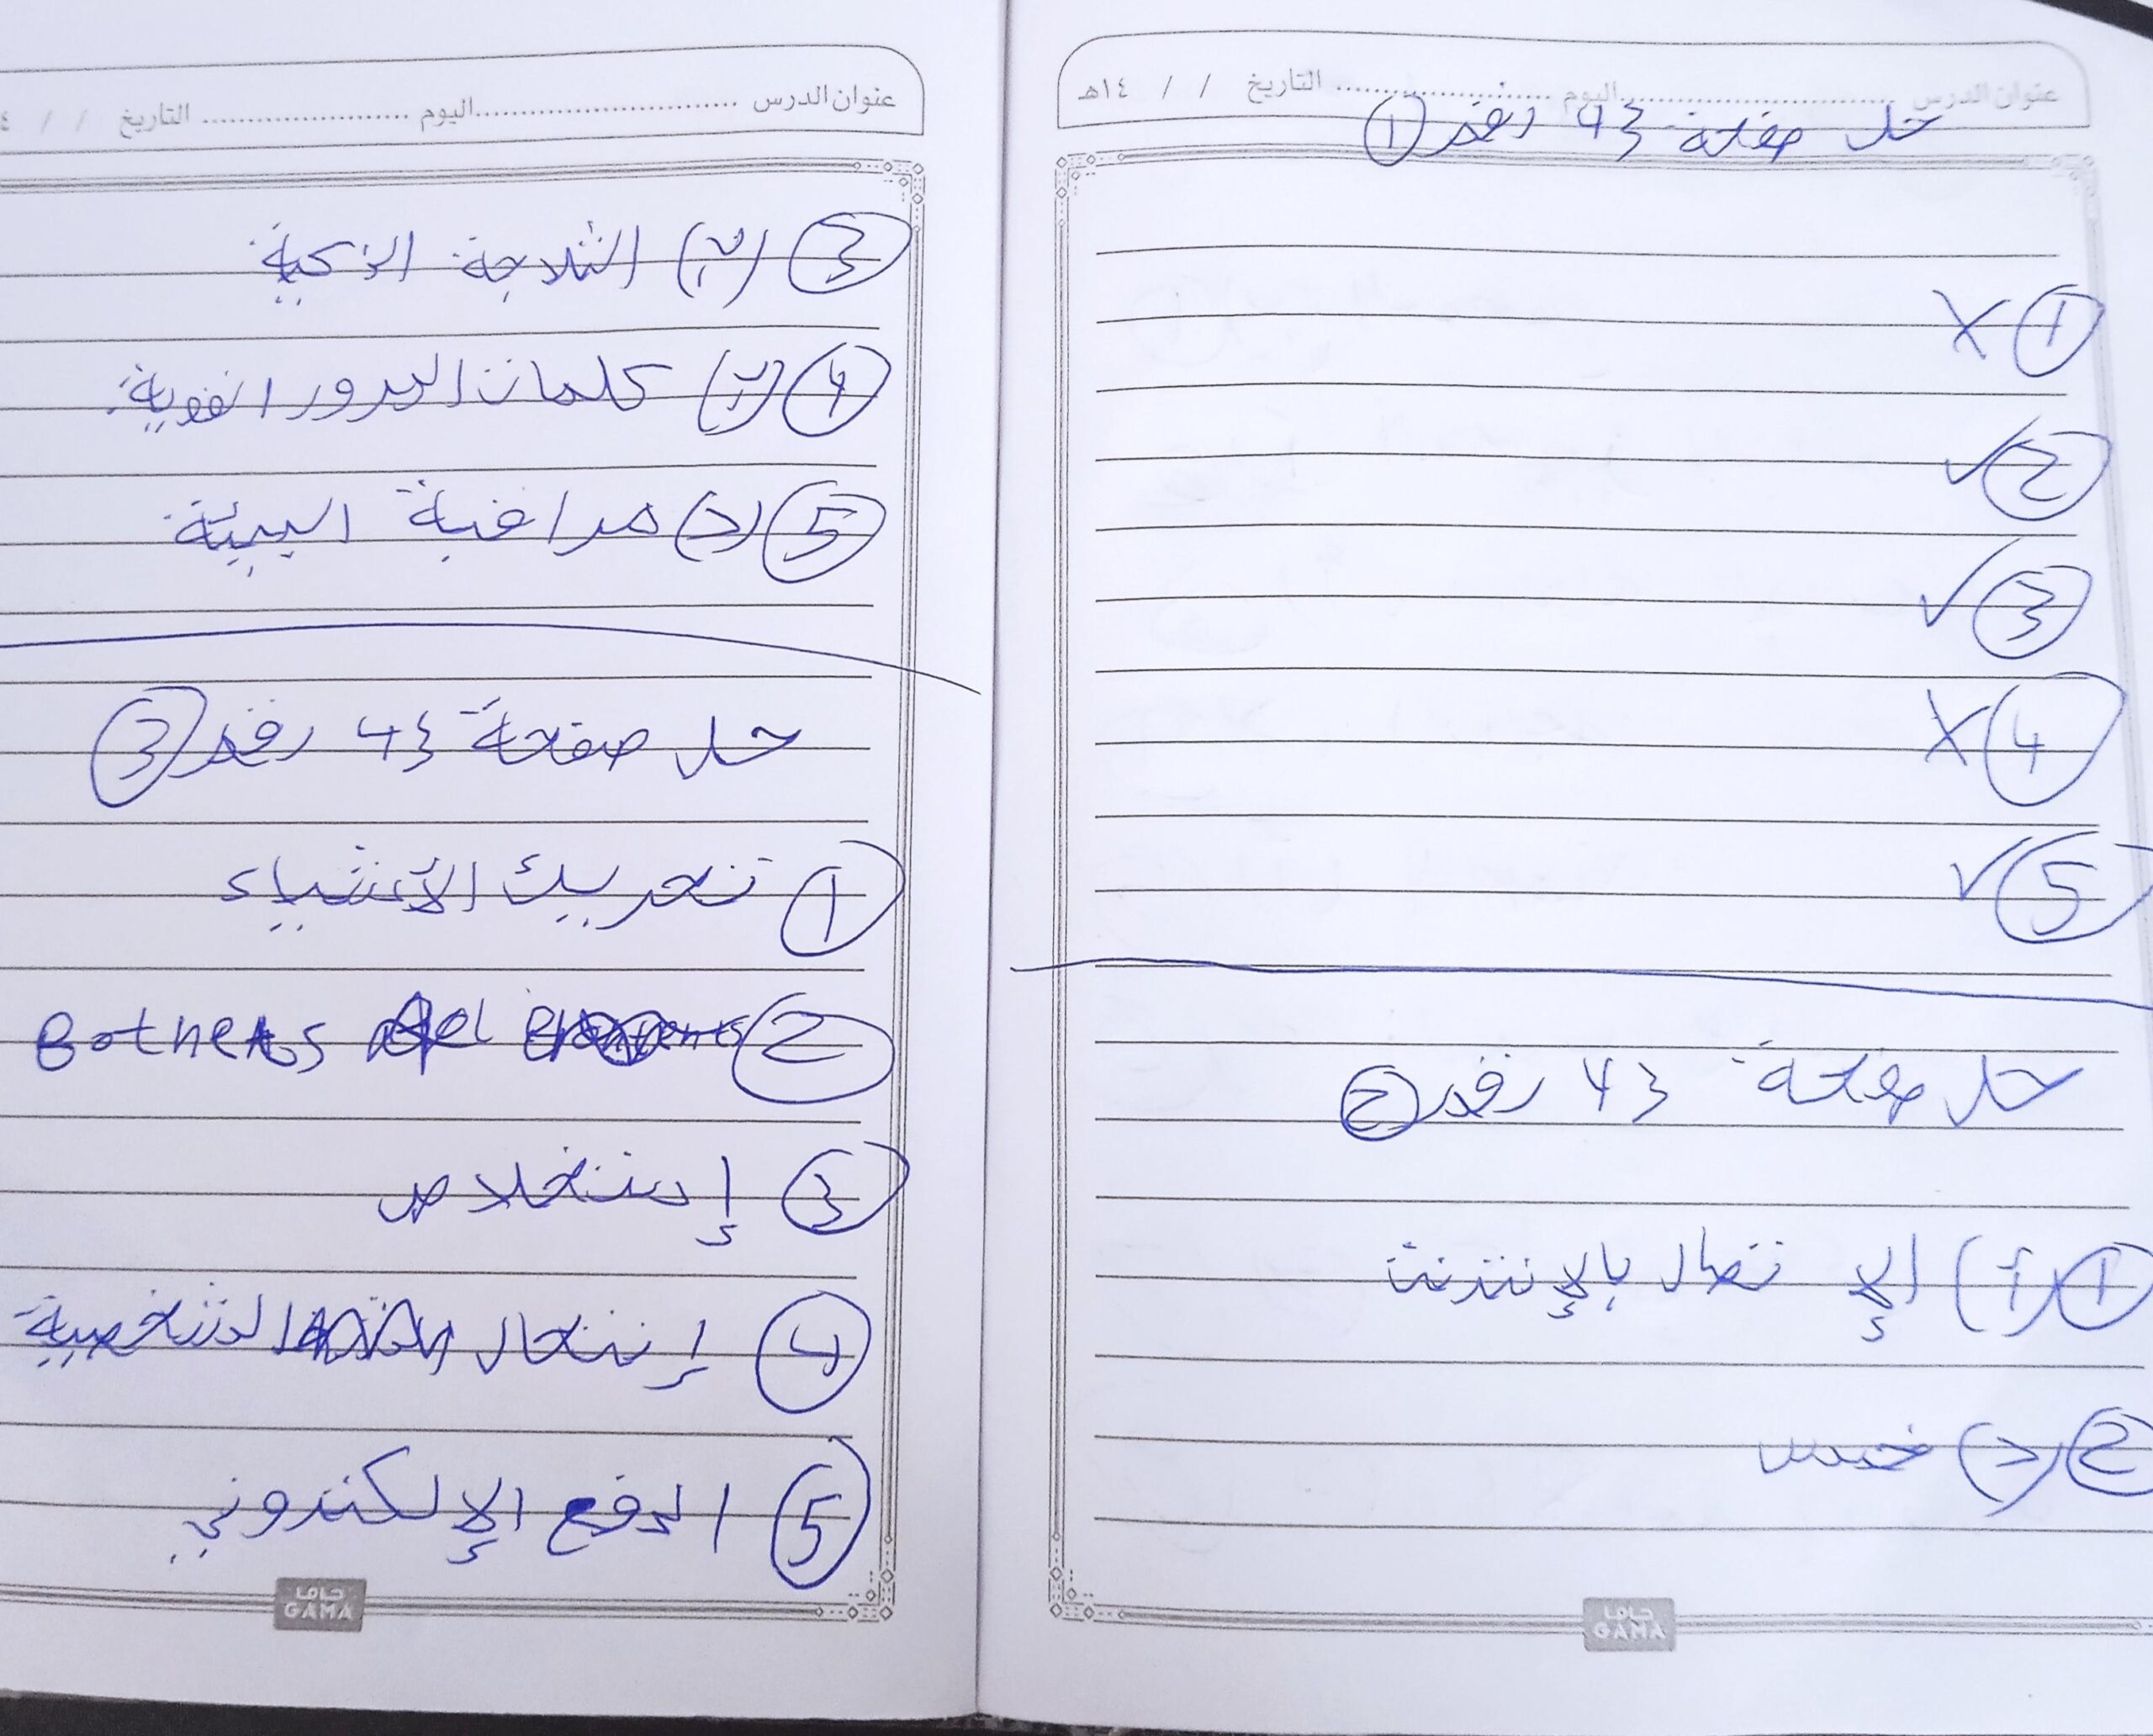 عنوان الدرس ........................ اليوم ........................ التاريخ / / ١٤هـ
حل صفحة 43 رقم ①
① X
② ✓
③ ✓
④ X
⑤ ✓
حل صفحة 43 رقم ②
① (أ) الإتصال بالإنترنت
② (د) خمس
جاما
GAMA
عنوان الدرس ........................ اليوم ........................ التاريخ / /
③ (ب) الثلاجة الذكية
④ (ب) كلمات المرور القوية
⑤ (د) مراقبة البيئة
حل صفحة 43 رقم ③
① تحريك الأشياء
②
③ إستخلاص
④ إنتحال الشخصية
⑤ الدفع الإلكتروني
جاما
GAMA